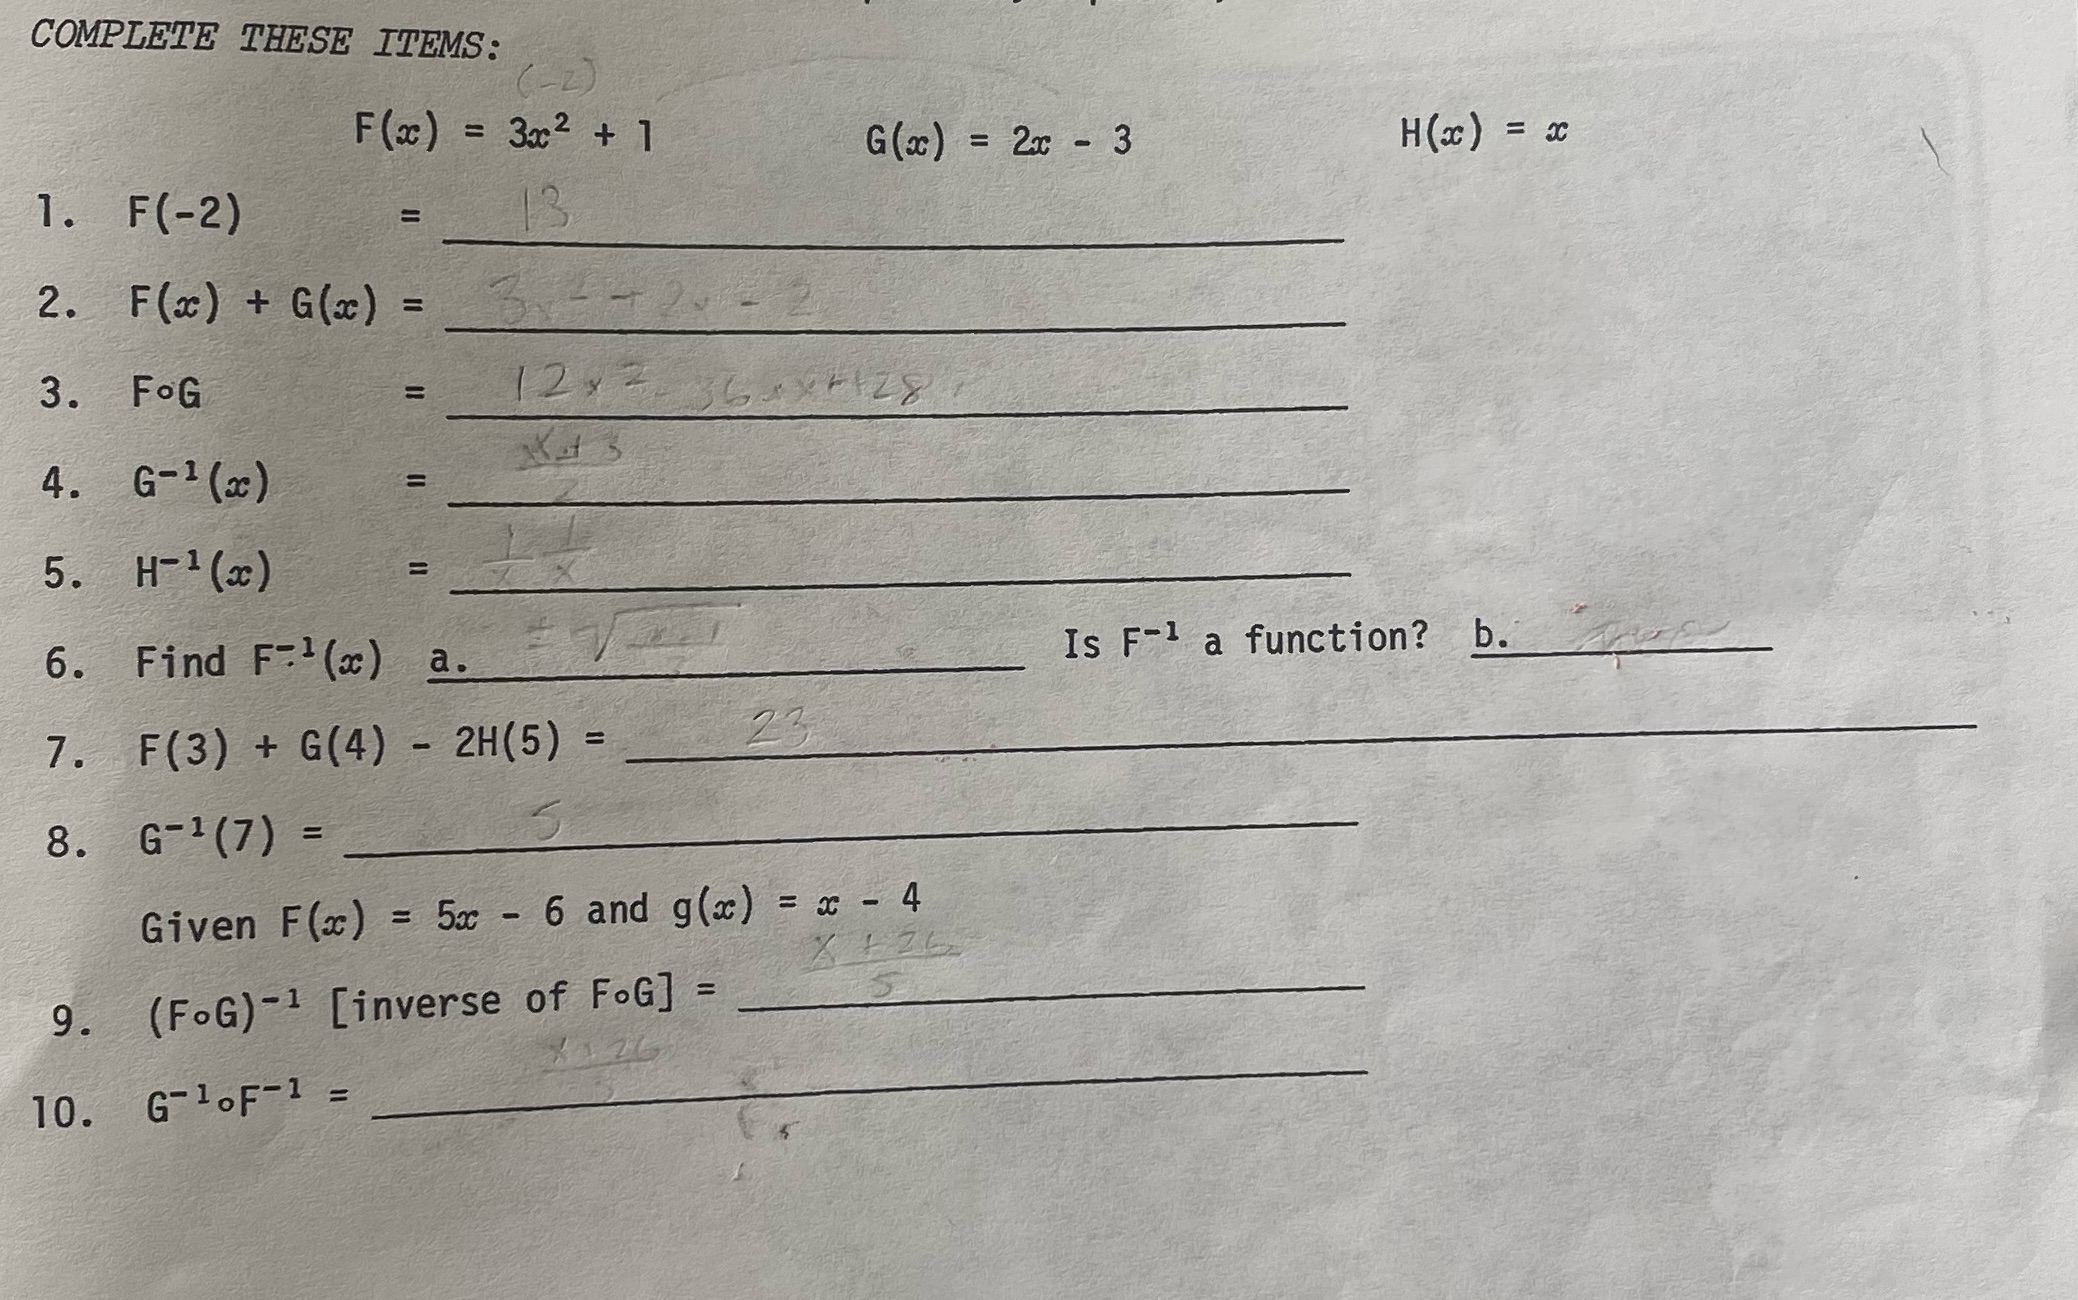 COMPLETE THESE ITEMS:
(-2)
F(x) = 3x² + 1 G(x) = 2x - 3 H(x) = x
1. F(-2) = 13
2. F(x) + G(x) = 3x² + 2x - 2
3. F∘G = 12x² - 36x + 28
4. G⁻¹(x) = x + 3 / 2
5. H⁻¹(x) = 1/x 1/x
6. Find F⁻¹(x) a. ± √ Is F⁻¹ a function? b.
7. F(3) + G(4) - 2H(5) = 23
8. G⁻¹(7) = 5
Given F(x) = 5x - 6 and g(x) = x - 4
9. (F∘G)⁻¹ [inverse of F∘G] = x + 26 / 5
10. G⁻¹∘F⁻¹ = x + 26 / 5